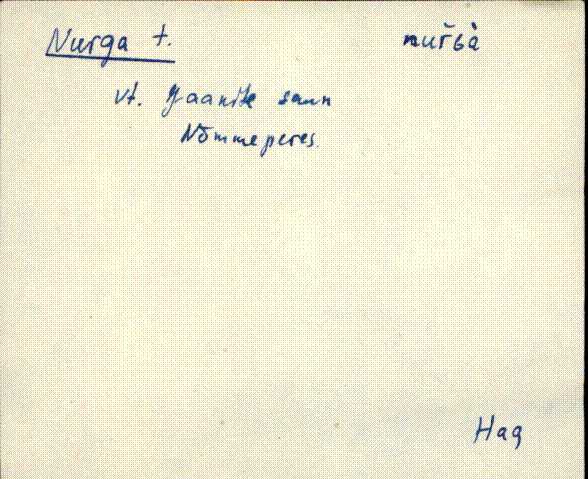 Nurga t. nuřɢà
vt. Jaanite saun
Nõmmeperes.
Hag